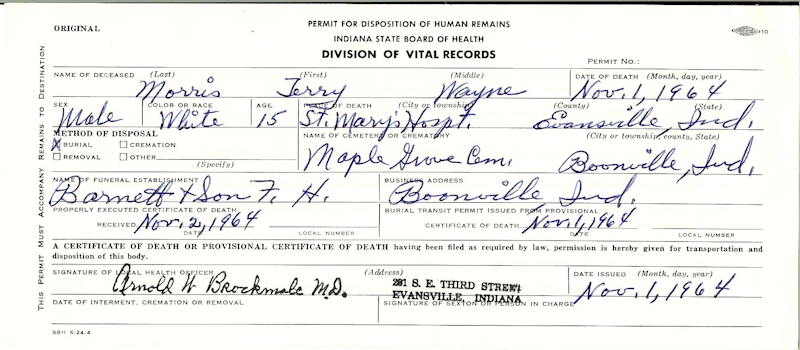 ORIGINAL
PERMIT FOR DISPOSITION OF HUMAN REMAINS
INDIANA STATE BOARD OF HEALTH
DIVISION OF VITAL RECORDS
10
PERMIT NO.:
THIS PERMIT MUST ACCOMPANY REMAINS TO DESTINATION
NAME OF DECEASED (Last) (First) (Middle) DATE OF DEATH (Month, day, year)
Morris Terry Wayne Nov. 1, 1964
SEX COLOR OR RACE AGE PLACE OF DEATH (City or township) (County) (State)
Male White 15 St. Mary's Hospt. Evansville, Ind.
METHOD OF DISPOSAL NAME OF CEMETERY OR CREMATORY (City or township, county, State)
X BURIAL CREMATION
REMOVAL OTHER
(Specify)
Maple Grove Cem. Boonville, Ind.
NAME OF FUNERAL ESTABLISHMENT BUSINESS ADDRESS
Barnett & Son F. H. Boonville, Ind.
PROPERLY EXECUTED CERTIFICATE OF DEATH BURIAL TRANSIT PERMIT ISSUED FROM PROVISIONAL
RECEIVED Nov. 2, 1964 CERTIFICATE OF DEATH Nov. 1, 1964
DATE LOCAL NUMBER DATE LOCAL NUMBER
A CERTIFICATE OF DEATH OR PROVISIONAL CERTIFICATE OF DEATH having been filed as required by law, permission is hereby given for transportation and
disposition of this body.
SIGNATURE OF LOCAL HEALTH OFFICER (Address) DATE ISSUED (Month, day, year)
Arnold W Brockmole M.D. 201 S. E. THIRD STREET Nov. 1, 1964
EVANSVILLE, INDIANA
DATE OF INTERMENT, CREMATION OR REMOVAL SIGNATURE OF SEXTON OR PERSON IN CHARGE
SBH 6-24-4